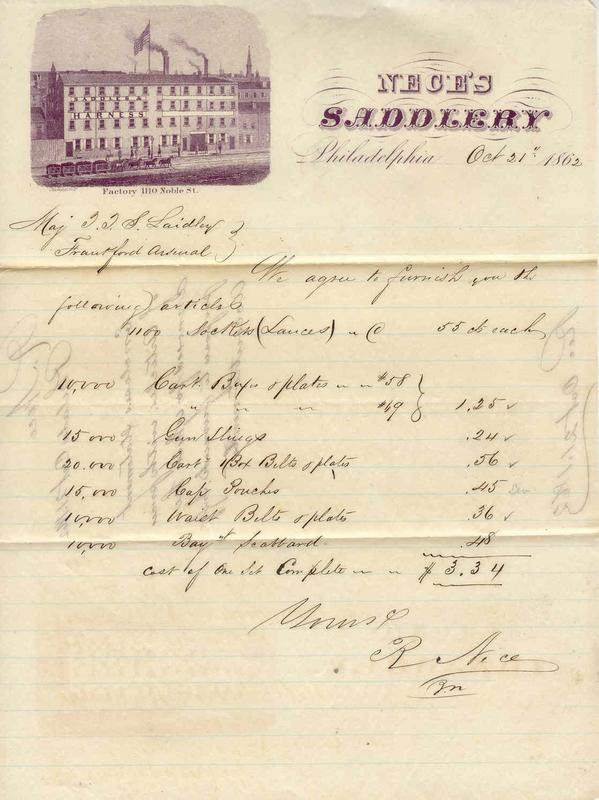 SADDLERY
HARNESS
Factory 1110 Noble St.
NECE'S
SADDLERY
Philadelphia Oct 21st 1862
Maj T. T. S. Laidley
Frankford Arsenal
We agree to furnish you the
following articles
1100 Sockets (Lances) @ 55 cts each
10,000 Cart. Boxes & plates " " #58
" " " #69 1.25
15000 Gun Slings .24
20.000 Cart Box Belts & plates .56
15,000 Cap Pouches .45
10,000 Waist Belts & plates .36
10,000 Bayt Scabbard .48
Cost of One Set Complete " " $ 3.34
Yours &
R Nece